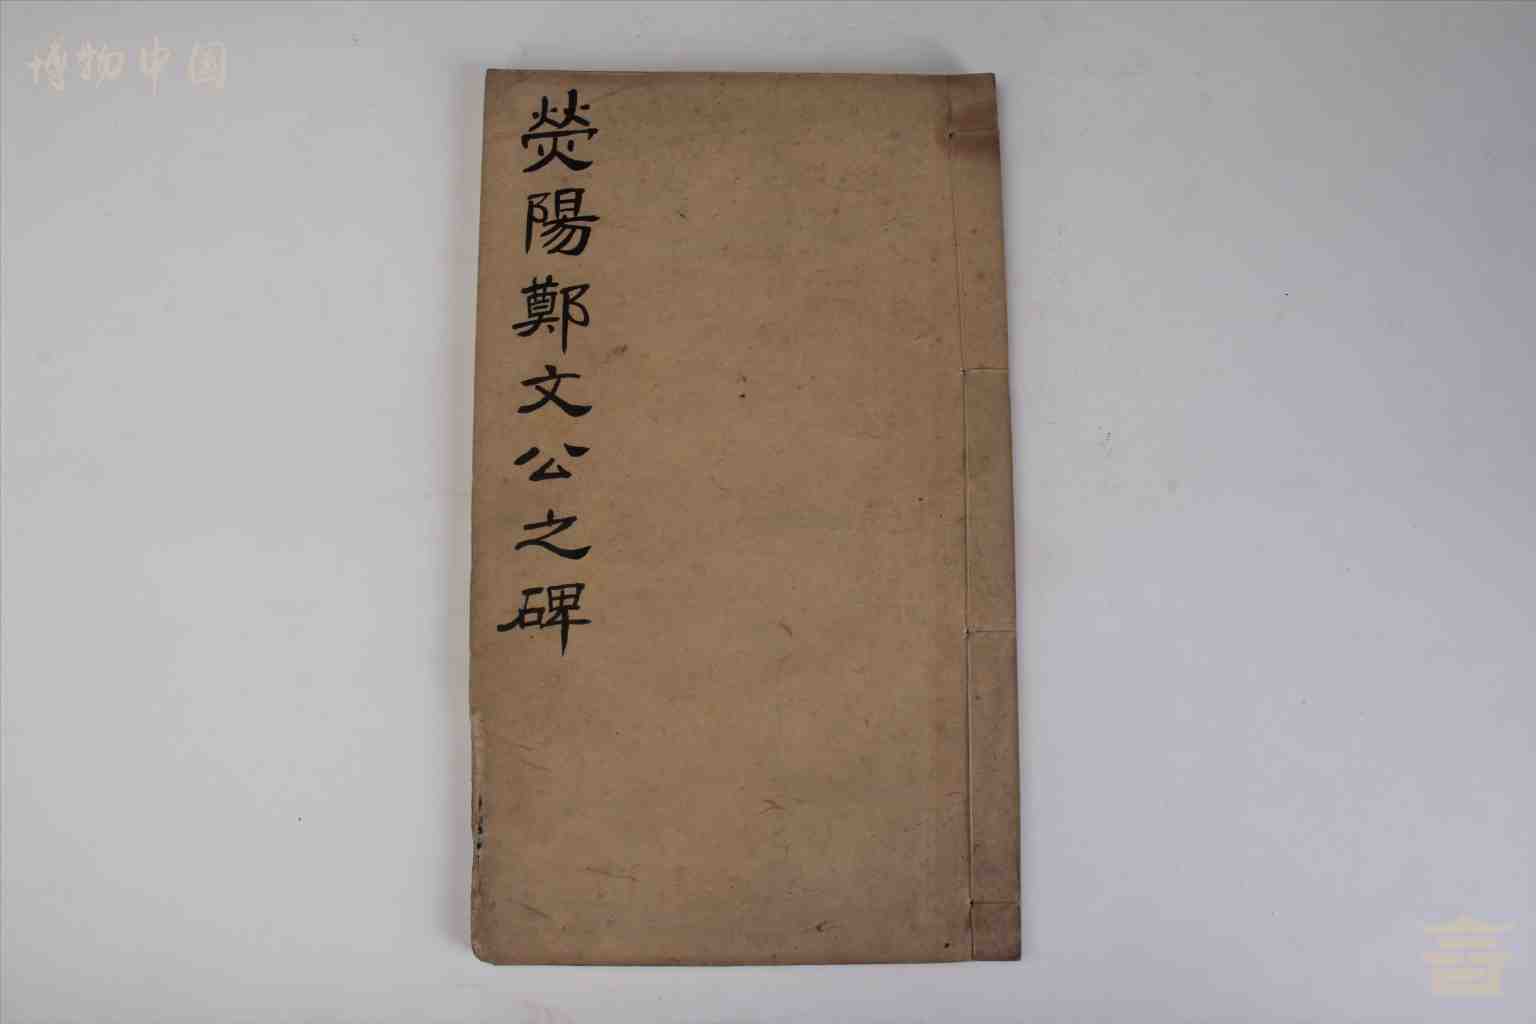 博物中国
熒陽鄭文公之碑